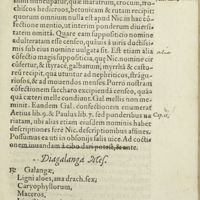 mini nuncupatur, quæ maratrum, crocum, mo-
chicos hederaceos, betonicam & rutam recipit:
quorum omnium nulla est apud Nic. in hac cō
fectione mentio, ut interim ponderum diuersi
tatem omittā. Quare eam suppositicio nomine
adulteratam esse censeo, quium & iuris doctissi-
mis sub eius nomine uulgata sit. Est etiam alia
cōfectio magis suppositicia, quæ Nic. nomine cir
cūfertur, & styracē, galbanum, myrrhā & casto-
reū recipit, quæ ut antidotus ad nephriticos, strā
guriosos, & ad mouendos menses. Porro nostrā
cōfectionem saccharo excipiendā censeo, quā
quā cæteri melle condiunt. Gal. mellis non me-
minit. Eandem Gal. confectionem enumerat
Aetius lib. 9. & Paulus lib. 7. sed ponderibus ua
riatam, ubi alias etiam eiusdem nominis habet
descriptiones ferè Nic. descriptionibus affines.
Possumus ea uti in obsonijs salis uice. Ad coctio
onem iuuandam à cibo dari potest, & ante.
Diagalanga Mes.
℞ Galangæ,
Ligni aloes, ana drach. sex,
Caryophyllorum,
Maceros,